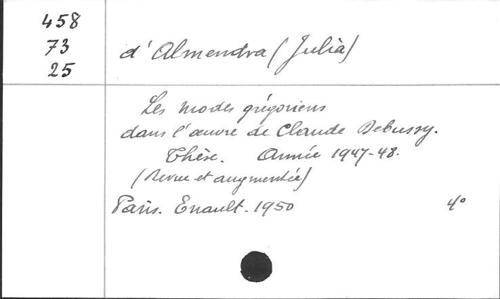 458
73
25
d'Almendra (Julia)
Les modes grégoriens
dans l'œuvre de Claude Debussy.
Thèse. Année 1947-48.
(Revue et augmentée)
Paris. Enault. 1950 4°